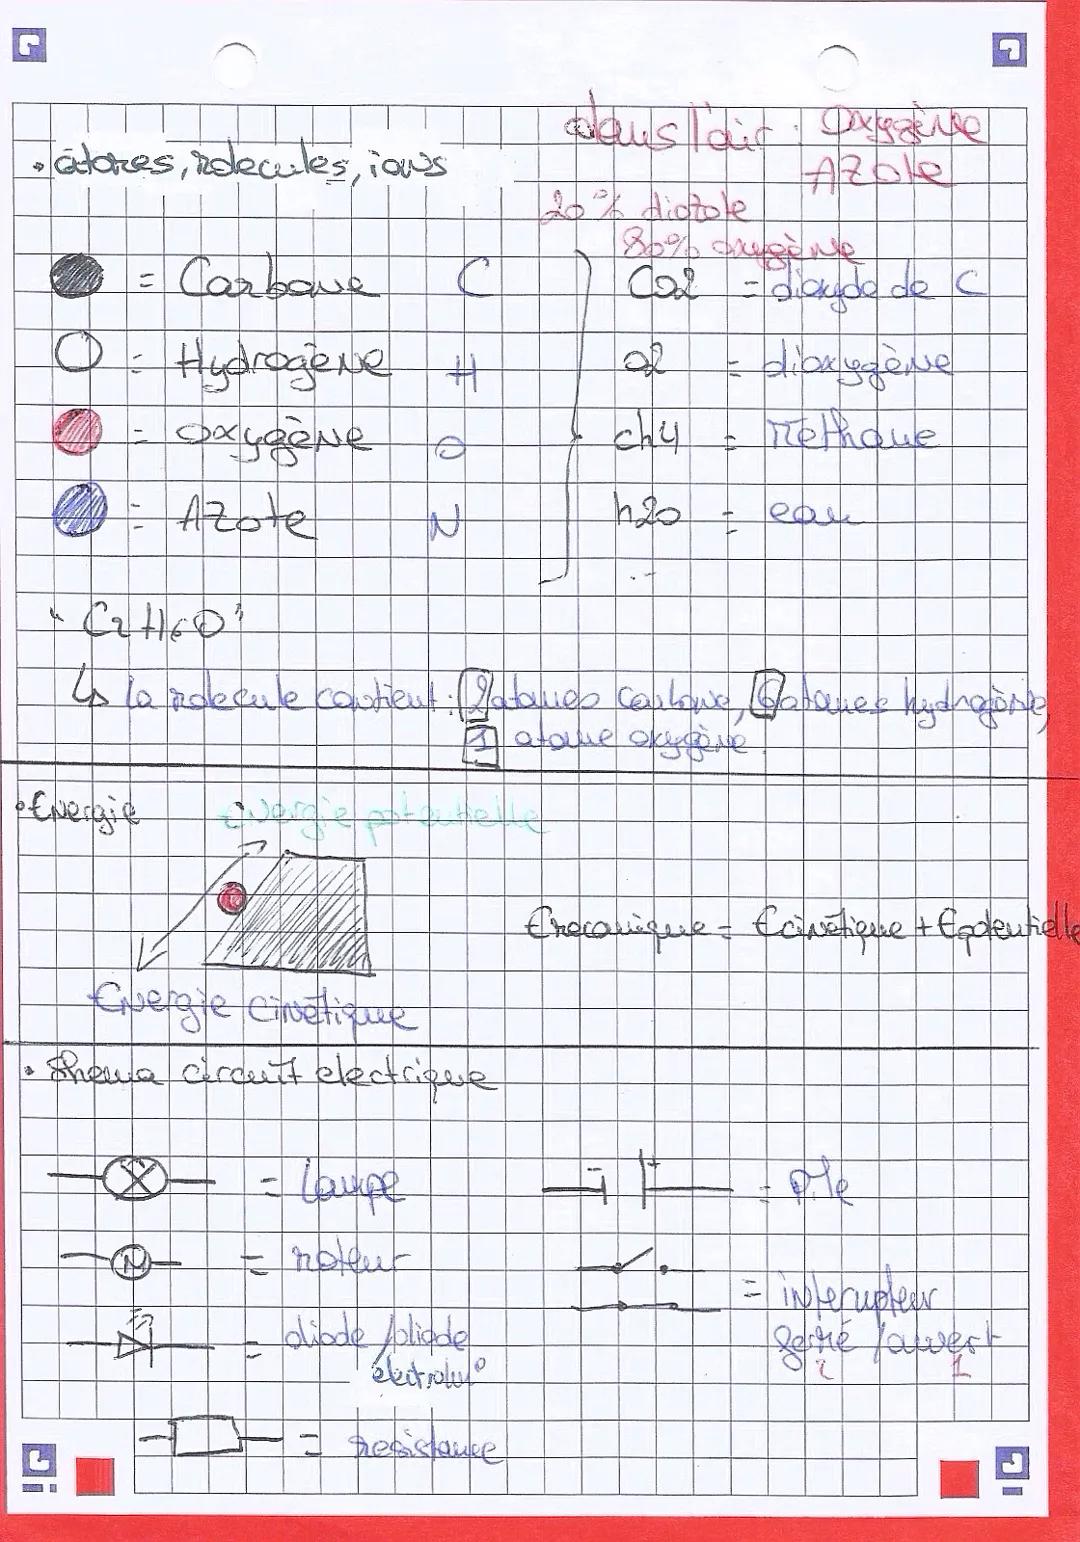 dans l'air : Oxygène
Azote
• atomes, molecules, ions
20% diazote
80% oxygène
= Carbone C
Co2 = dioxyde de C
= Hydrogène H
o2 = dioxygène
= oxygène O
ch4 = Méthane
= Azote N
h2o = eau
"C2H6O"
↳ la molecule contient : 2 atomes carbone, 6 atomes hydrogène,
1 atome oxygène.
• Energie
Energie potentielle
Emecanique = Ecinétique + Epotentielle
Energie cinétique
• Shema circuit electrique
= lampe
- +
= pile
M = moteur
= interupteur
fermé / ouvert
2 1
= diode / diode
électrolu°
= resistance